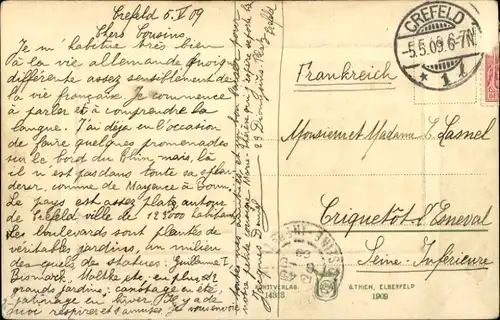 Crefeld 5.V 09
Chers Cousins
Je m'habitue très bien
à la vie allemande quoique
différente assez sensiblement de
la vie française. Je commence
à parler et à comprendre la
langue. J'ai déjà eu l'occasion
de faire quelques promenades
sur le bord du Rhin, mais là
il n'est pas dans toute sa splen
derer, comme de Mayence à Bonn.
Le pays est assez plat autour
de Crefeld ville de 125000 habitants
les boulevards sont plantés de
véritables jardins, au milieu
des quels de statues: Guillaume I
Bismark, Moltke etc. en plus de 2
grands jardins; canotage en été
patinage en hiver. Il y a de
quoi respirer et s'amuser. Je vous envoie
notre petite cousine
Jacques
CREFELD
-5.5.09.6-7N.
* 1 l
Frankreich
Monsieur et Madame E. Lasnel
Criquetôt l'Esneval
Seine-Inférieure
KUNSTVERLAG.
14818
G. THIEN, ELBERFELD
1909